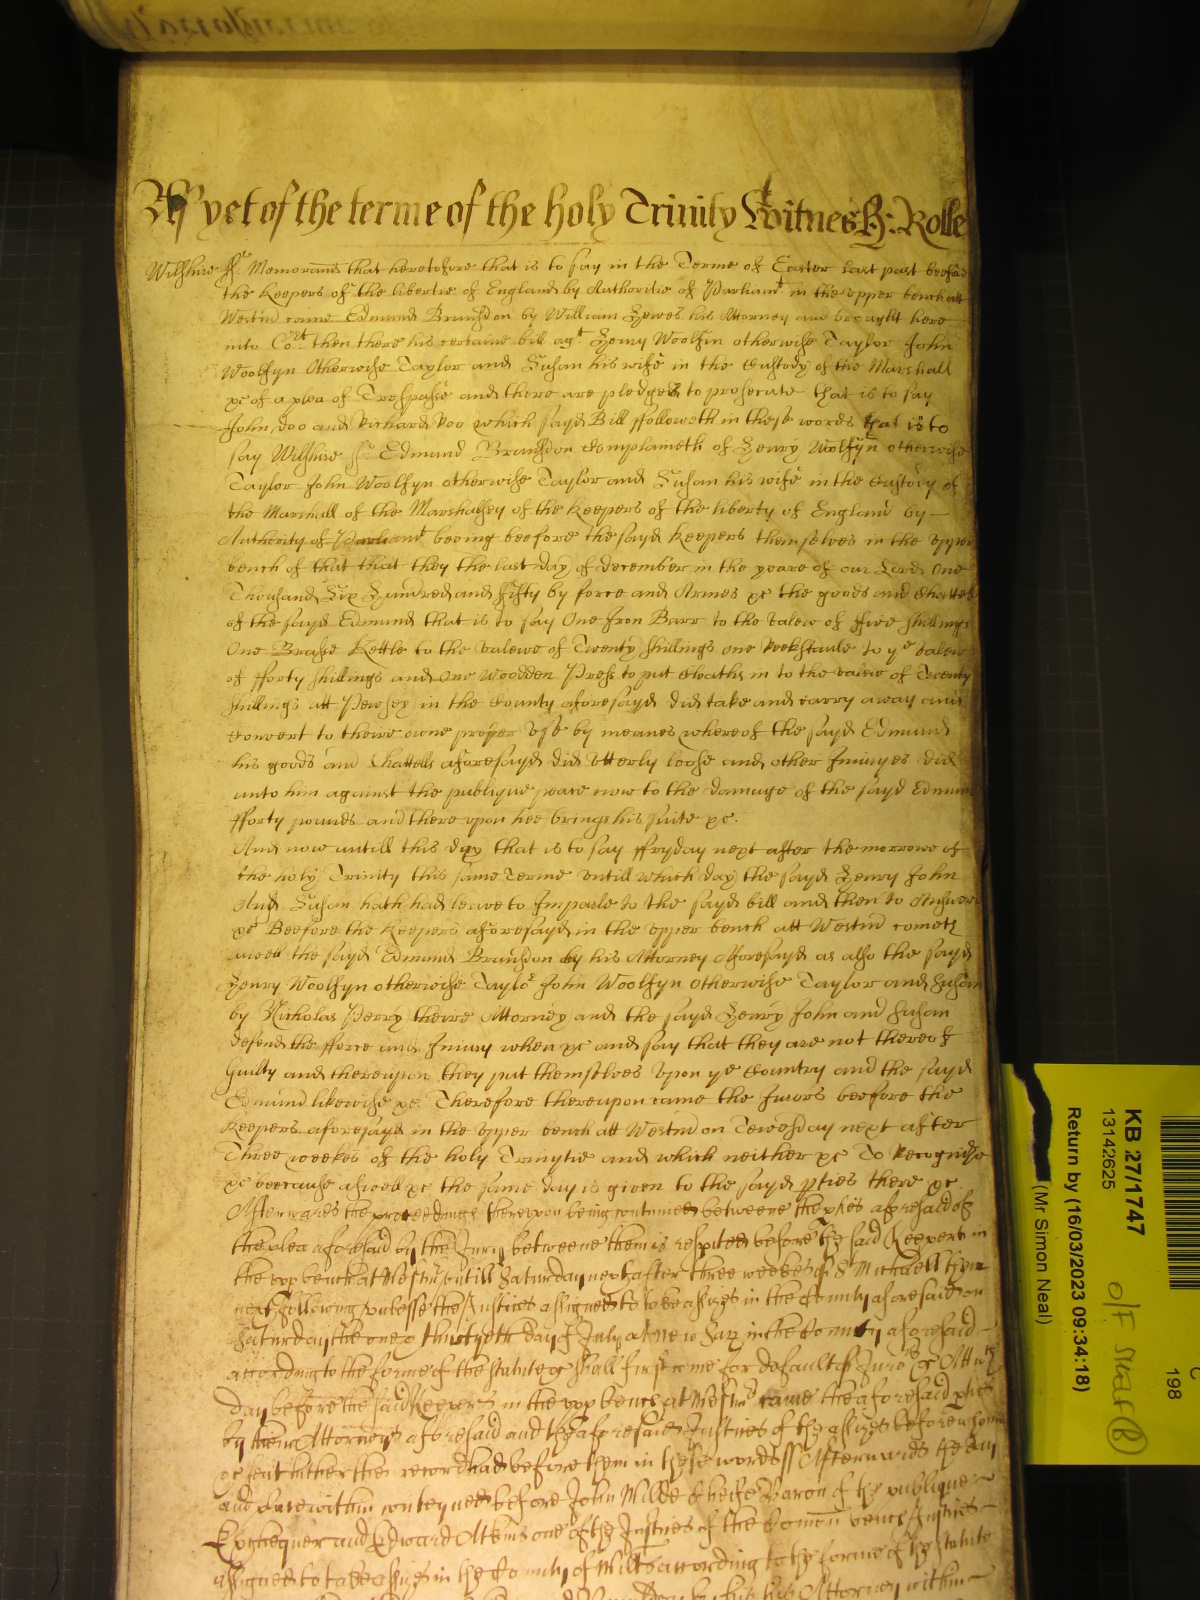 As yet of the terme of the holy Trinity Witnes H: Rolle
Wiltshire ss. Memorand that heretofore that is to say in the Terme of Easter last past beefore
the keepers of the libertie of England by Authoritie of Parliamt in the upper bench att
Westm came Edmund Brunsdon by William Hewes his Attorney and brought here
into Cort then there his certaine bill agt Henry Woolfyn otherwise Taylor John
Woolfyn Otherwise Taylor and Susan his wife in the Custody of the Marshall
&c of a plea of Trespasse and there are pledges to prosecute that is to say
John doo and Richard Roo which sayd Bill ffolloweth in these words that is to
say Wiltshire ss. Edmund Brunsdon Complaineth of Henry Wolfyn otherwise
Taylor John Woolfyn otherwise Taylor and Susan his wife in the Custody of
the Marshall of the Marshalsey of the keepers of the liberty of England by
Authority of Parliamt beeing beefore the sayd keepers themselves in the upper
bench of that that they the last day of december in the yeare of our Lord One
Thousand Six Hundred and ffifty by force and Armes &c the goods and Chattells
of the sayd Edmund that is to say One Iron Barr to the valew of ffive shillings
One Brasse Kettle to the valewe of Twenty shillings one to ye valew
of fforty shillings and One Wodden Press to put Cloaths in to the valew of Twenty
shillings att Pewsey in the County aforesayd did take and carry away and
convert to theire owne proper Use by meanes whereof the sayd Edmund
his goods and Chattells aforesayd did utterly loose and other Iniuryes did
unto him against the publique peace now to the damage of the sayd Edmund
fforty pounds and there upon hee brings his suite &c.
And now untill this day that is to say ffryday next after the morrowe of
the holy Trinity this same Terme untill which day the sayd Henry John
And Susan hath had leave to Imparle to the sayd bill and then to Answere
&c Beefore the Keepers aforesayd in the upper bench att Westm cometh
aswell the sayd Edmund Brunsdon by his Attorney Aforesayd as also the sayd
Henry Woolfyn otherwise Taylor John Woolfyn otherwise Taylor and Susan
by Nicholas Perry theire Attorney and the sayd Henry John and Susan
defend the fforce and Iniury when &c and say that they are not thereof
guilty and thereupon they put themselves Upon ye Country and the sayd
Edmund likewise &c Therefore thereupon came the Iurors beefore the
keepers aforesayd in the upper bench att Westm on Tewesday next after
Three weekes of the holy Trinytie and which neither &c To Recognise
&c beecause aswell &c the same day is given to the sayd pties there &c
Afterwards the proceedings thereupon being continued betweene the pties aforesaid of
the plea aforesaid by the Iury betweene them is respited before the said Keepers in
the upp bench at Westm untill Saturday next after three weekes of St Michaell then
next following unlesse the Iustices assigned to take assizes in the County aforesaid on
Saturday the one & thirtyeth day of July at New Sarz in the County aforesaid
according to the forme of the statute &c shall first come for default of Iuro &c Att wch
day before the said Keepers in the upp bench at Westm came the aforesaid pties
by their Attorneys aforesaid and the aforesaid Iustices of the assizes before whom
&c sent hither their record had before them in these words ss Afterwards the day
and place within conteyned before John Wilde Cheife Baron of the publique
Exchequer and Edward Atkins one of the Iustices of the Comon bench Iustices
assigned to take assizes in the County of Wilts according to the forme of the statute
his Attorney within
KB 27/1747
13142625
Return by (16/03/2023 09:34:18)
(Mr Simon Neal)
C
198